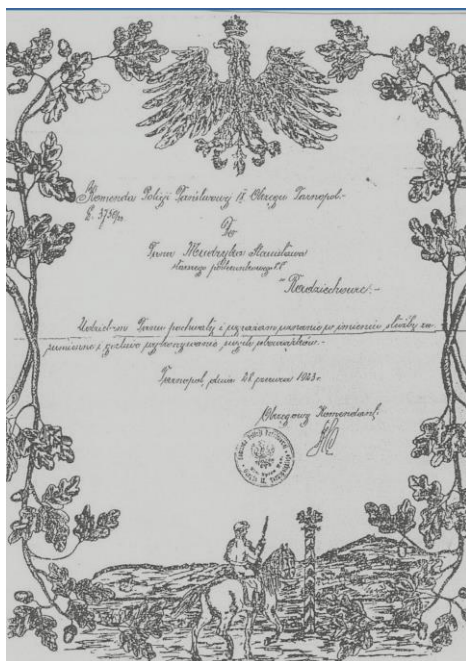 Komenda Policji Państwowej IX Okręgu Tarnopol.-
L. 3750/
Do
Pana Mendryka Stanisława
starszego posterunkowego PP
w Radziechowie.-
Udzielam Panu pochwały i wyrażam uznanie w imieniu służby za
sumienne i gorliwe wykonywanie swych obowiązków.-
Tarnopol, dnia 28 czerwca 1923 r.
Okręgowy Komendant: